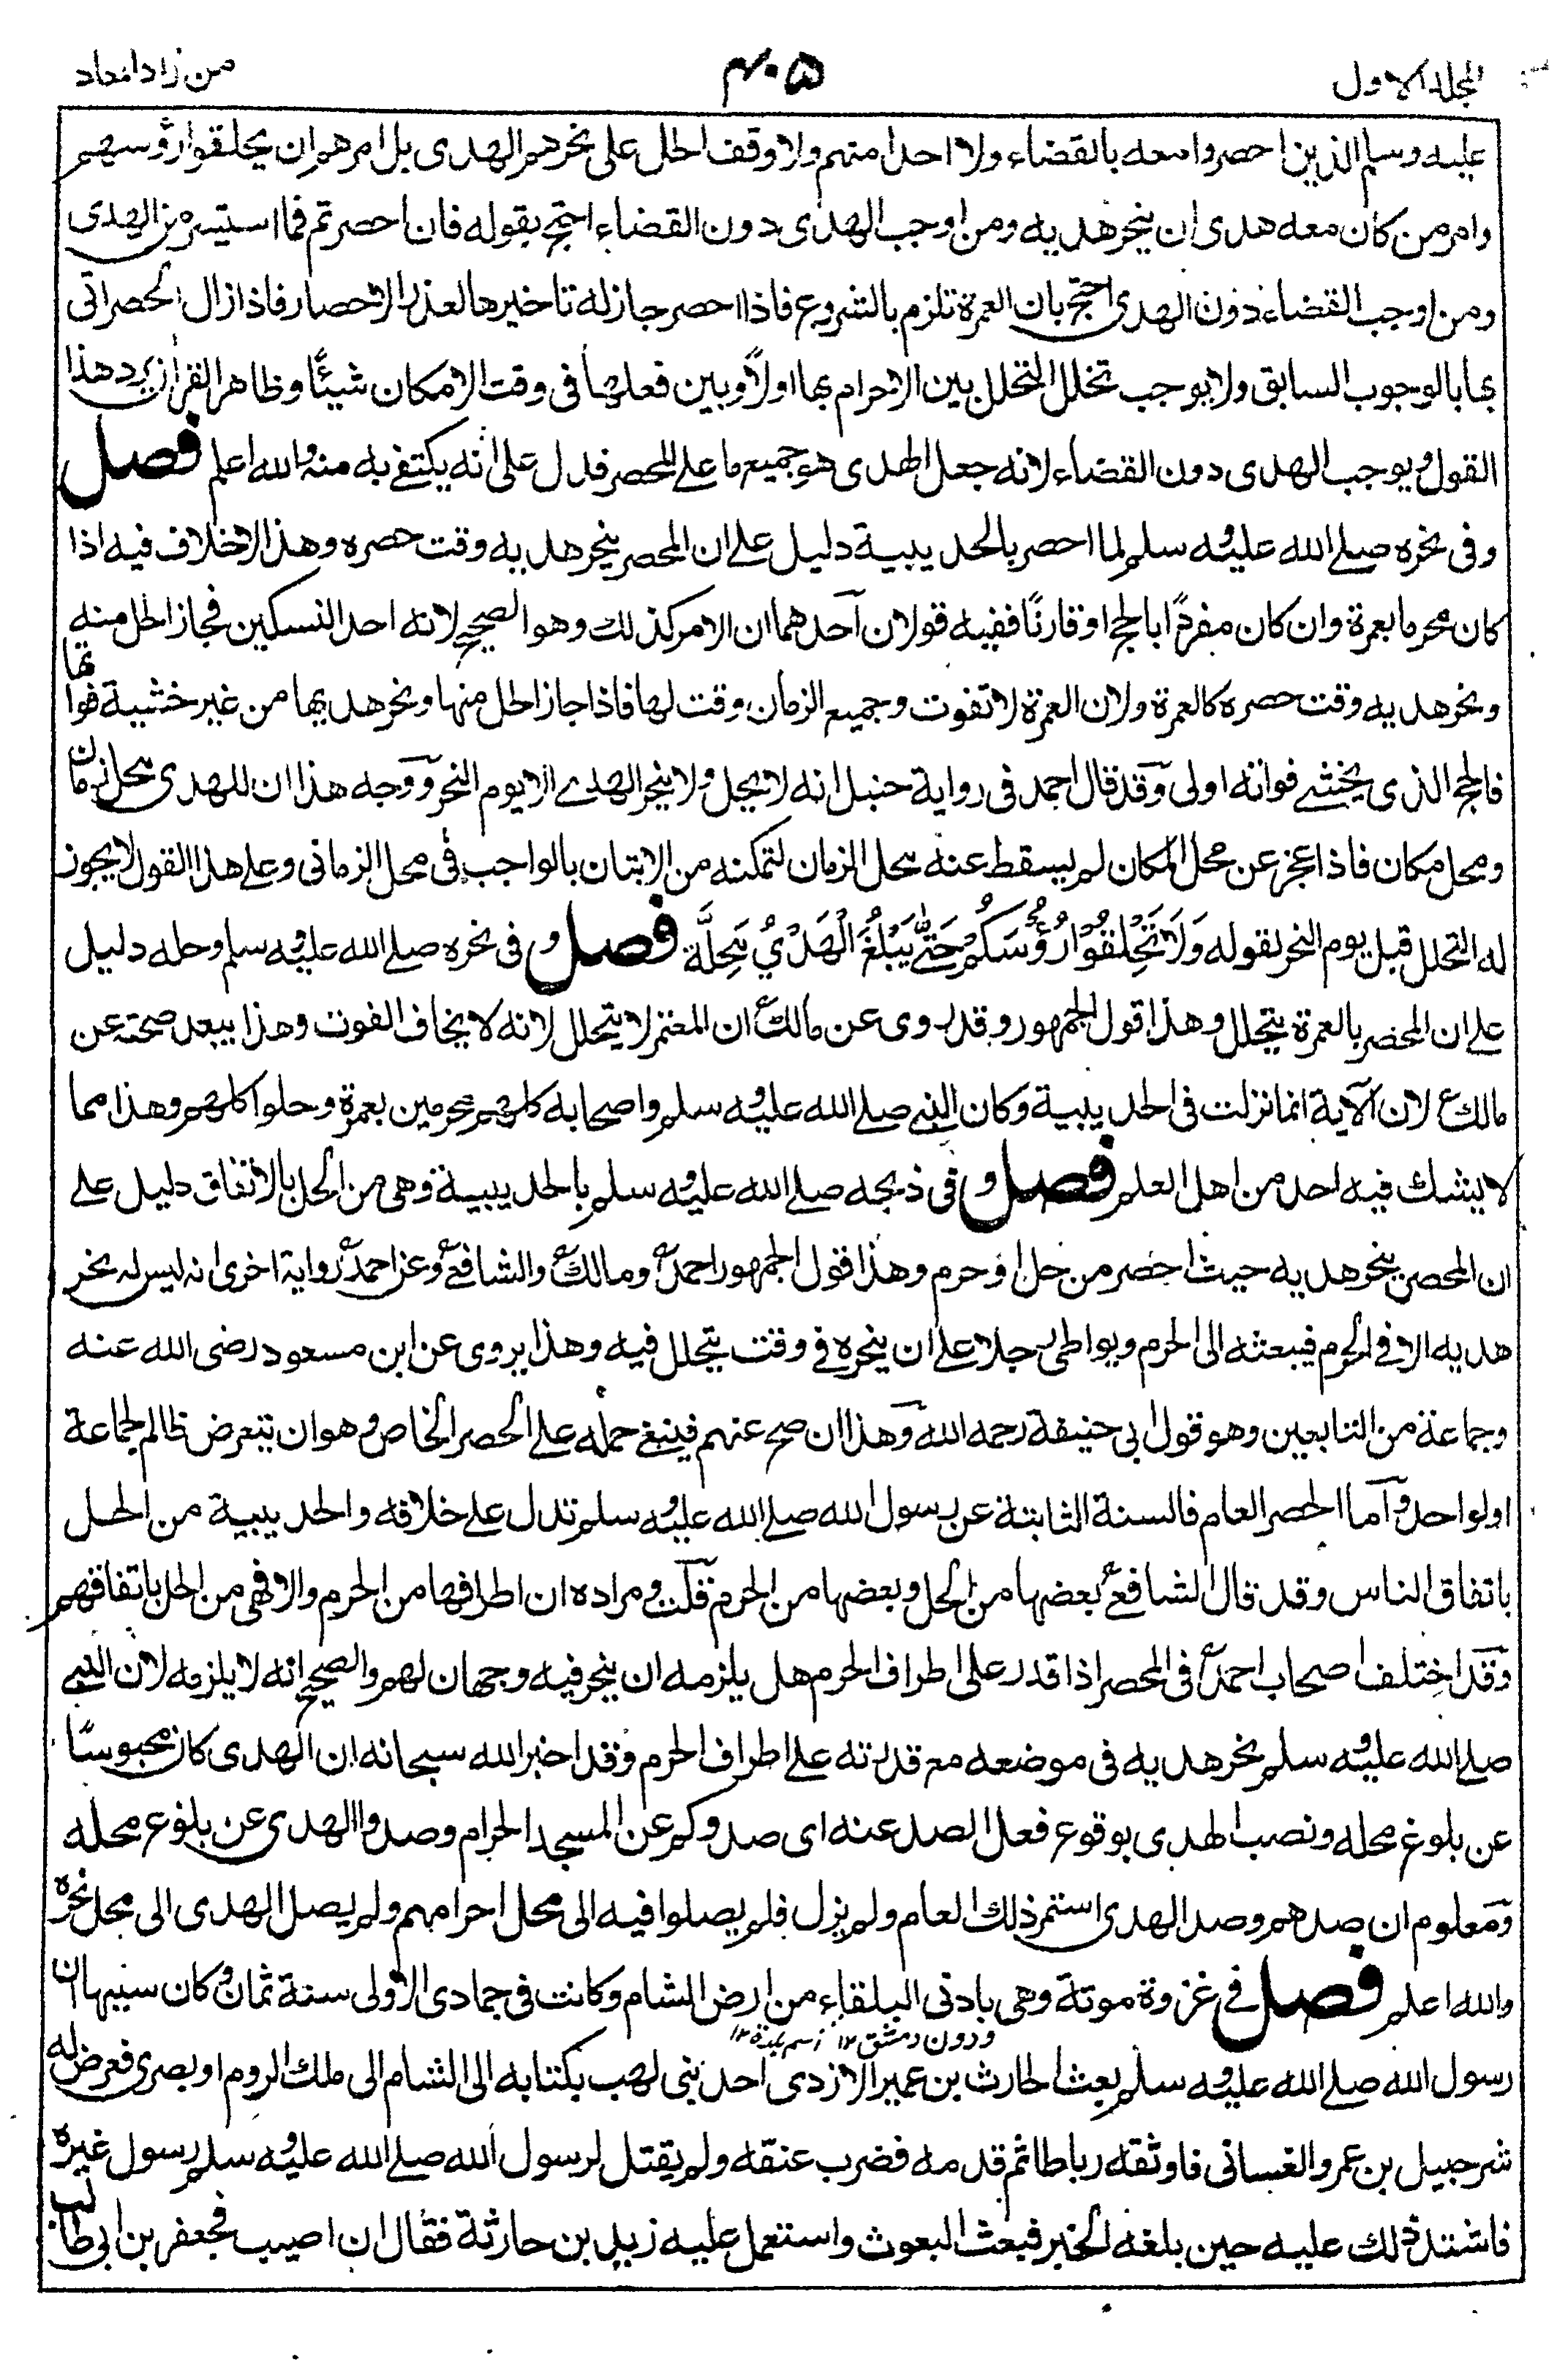 المجلد الاول
٤٠٥
من زاد المعاد
عليه وسلم الذين احصروا معه بالقضاء ولا احدا منهم ولا وقف الحل على نحرهم الهدى بل امرهم ان يحلقوا رؤسهم
وامر من كان معه هدى ان ينحر هديه ومن اوجب الهدى دون القضاء احتج بقوله فان احصرتم فما استيسر من الهدى
ومن اوجب القضاء دون الهدى احتج بان العمرة تلزم بالشروع فاذا احصر جاز له تاخيرها لعذر الاحصار فاذا زال الحصر اتى
بها بالوجوب السابق ولا يوجب تخلل التحلل بين الاحرام بها اولاً وبين فعلها فى وقت الامكان شيئًا وظاهر القران يرد هذا
القول ويوجب الهدى دون القضاء لانه جعل الهدى هو جميع ما على المحصر فدل على انه يكتفے به منه والله اعلم فصل
وفى نحره صلے الله عليه وسلم لما احصر بالحديبية دليل علے ان المحصر ينحر هديه وقت حصره وهذا لا خلاف فيه اذا
كان محرما بعمرة وان كان مفردًا بالحج او قارنًا ففيه قولان احدهما ان الامر كذلك وهو الصحيح لانه احد النسكين فجاز الحل منه
ونحر هديه وقت حصره كالعمرة ولان العمرة لا تفوت وجميع الزمان وقت لها فاذا جاز الحل منها ونحر هديها من غير خشية فواتها
فالحج الذى يخشے فواته اولى وقد قال احمد فى رواية حنبل انه لا يحل ولا ينحر الهدے الا يوم النحر ووجه هذا ان للهدى محل زمان
ومحل مكان فاذا عجز عن محل المكان لم يسقط عنه محل الزمان لتمكنه من الاتيان بالواجب فى محل الزمانى وعلے هذا القول لا يجوز
له التحلل قبل يوم النحر لقوله وَلَا تَحْلِقُوْا رُؤُسَكُمْ حَتّٰے يَبْلُغَ الْهَدْيُ مَحِلَّهٗ فصل وفى نحره صلے الله عليه وسلم وحله دليل
علے ان المحصر بالعمرة يتحلل وهذا قول الجمهور وقد روى عن مالكؒ ان المعتمر لا يتحلل لانه لا يخاف الفوت وهذا يبعد صحته عن
مالكؒ لان الآية انما نزلت فى الحديبية وكان النبے صلے الله عليه وسلم واصحابه كلهم محرمين بعمرة وحلوا كلهم وهذا مما
لا يشك فيه احد من اهل العلم فصل وفى ذبحه صلے الله عليه وسلم بالحديبية وهى من الحل بالاتفاق دليل علے
ان المحصر ينحر هديه حيث احصر من حل او حرم وهذا قول الجمهور احمدؒ ومالكؒ والشافعےؒ وعن احمدؒ رواية اخرى انه ليس له نحر
هديه الا فے الحرم فيبعثه الى الحرم ويواطى رجلا علے ان ينحره فے وقت يتحلل فيه وهذا يروى عن ابن مسعود رضى الله عنه
وجماعة من التابعين وهو قول ابى حنيفة رحمه الله وهذا ان صح عنهم فينبغے حمله علے الحصر الخاص وهو ان يتعرض ظالم لجماعة
او لواحد واما الحصر العام فالسنة الثابتة عن رسول الله صلے الله عليه وسلم تدل علے خلافه والحديبية من الحل
باتفاق الناس وقد قال الشافعےؒ بعضها من الحل وبعضها من الحرم قلت ومراده ان اطرافها من الحرم والا فهى من الحل باتفاقهم
وقد اختلف اصحاب احمدؒ فى المحصر اذا قدر على اطراف الحرم هل يلزمه ان ينحر فيه وجهان لهم والصحيح انه لا يلزمه لان النبے
صلے الله عليه وسلم نحر هديه فى موضعه مع قدرته علے اطراف الحرم وقد اخبر الله سبحانه ان الهدى كان محبوسًا
عن بلوغ محله ونصب الهدى بوقوع فعل الصد عنه اى صدوكم عن المسجد الحرام وصدوا الهدى عن بلوغ محله
ومعلوم ان صدهم وصد الهدى استمر ذلك العام ولم يزل فلم يصلوا فيه الى محل احرامهم ولم يصل الهدى الى محل نحره
والله اعلم فصل فے غزوة موتة وهى بادنى البلقاء من ارض الشام وكانت فى جمادى الاولى سنة ثمان وكان سببها ان
ودون دمشق ١٢ اسم بلدة ١٢
رسول الله صلے الله عليه وسلم بعث الحارث بن عمير الازدى احد بنى لهب بكتابه الى الشام الى ملك الروم او بصرى فعرض له
شرحبيل بن عمرو الغسانى فاوثقه رباطا ثم قدمه فضرب عنقه ولم يقتل لرسول الله صلے الله عليه وسلم رسول غيره
فاشتد ذلك عليه حين بلغه الخبر فبعث البعوث واستعمل عليه زيد بن حارثة فقال ان اصيب فجعفر بن ابى طالب